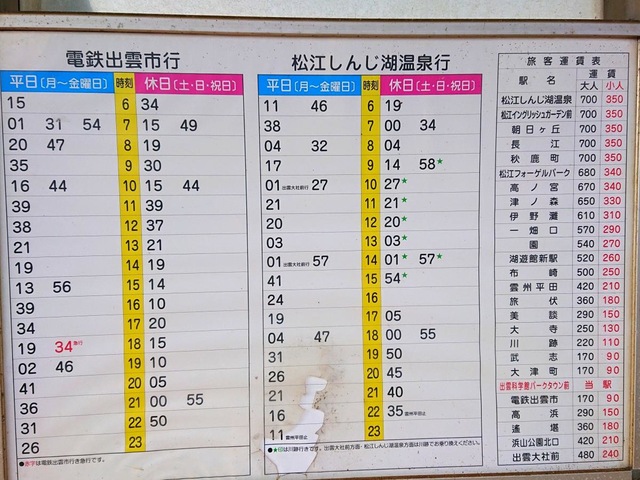 電鉄出雲市行
平日(月～金曜日) 時刻 休日(土・日・祝日)
15 6 34
01 31 54 7 15 49
20 47 8 19
35 9 30
16 44 10 15 44
39 11 39
38 12 37
21 13 21
19 14 19
13 56 15 14
39 16 10
34 17 20
19 34急行 18 15
02 46 19 10
41 20 05
36 21 00 55
31 22 50
26 23
●赤字は電鉄出雲市行き急行です。
松江しんじ湖温泉行
平日(月～金曜日) 時刻 休日(土・日・祝日)
11 46 6 19
38 7 00 34
04 32 8 04
17 9 14 58★
01出雲大社前行 27 10 27★
21 11 21★
20 12 20★
03 13 03★
01出雲大社前行 57 14 01★ 57★
41 15 54★
24 16
19 17 05
04 47 18 00 55
31 19 50
26 20 45
21 21 40
16 22 35雲州平田止
11雲州平田止 23
●★印は川跡行きです。出雲大社前方面・松江しんじ湖温泉方面は川跡でお乗り換えください。
旅客運賃表
駅名 運賃
大人 小人
松江しんじ湖温泉 700 350
松江イングリッシュガーデン前 700 350
朝日ヶ丘 700 350
長江 700 350
秋鹿町 700 350
松江フォーゲルパーク 680 340
高ノ宮 670 340
津ノ森 650 330
伊野灘 610 310
一畑口 570 290
園 540 270
湖遊館新駅 520 260
布崎 500 250
雲州平田 420 210
旅伏 360 180
美談 290 150
大寺 250 130
川跡 220 110
武志 170 90
大津町 170 90
出雲科学館パークタウン前 当駅
電鉄出雲市 170 90
高浜 290 150
遙堪 360 180
浜山公園北口 420 210
出雲大社前 480 240